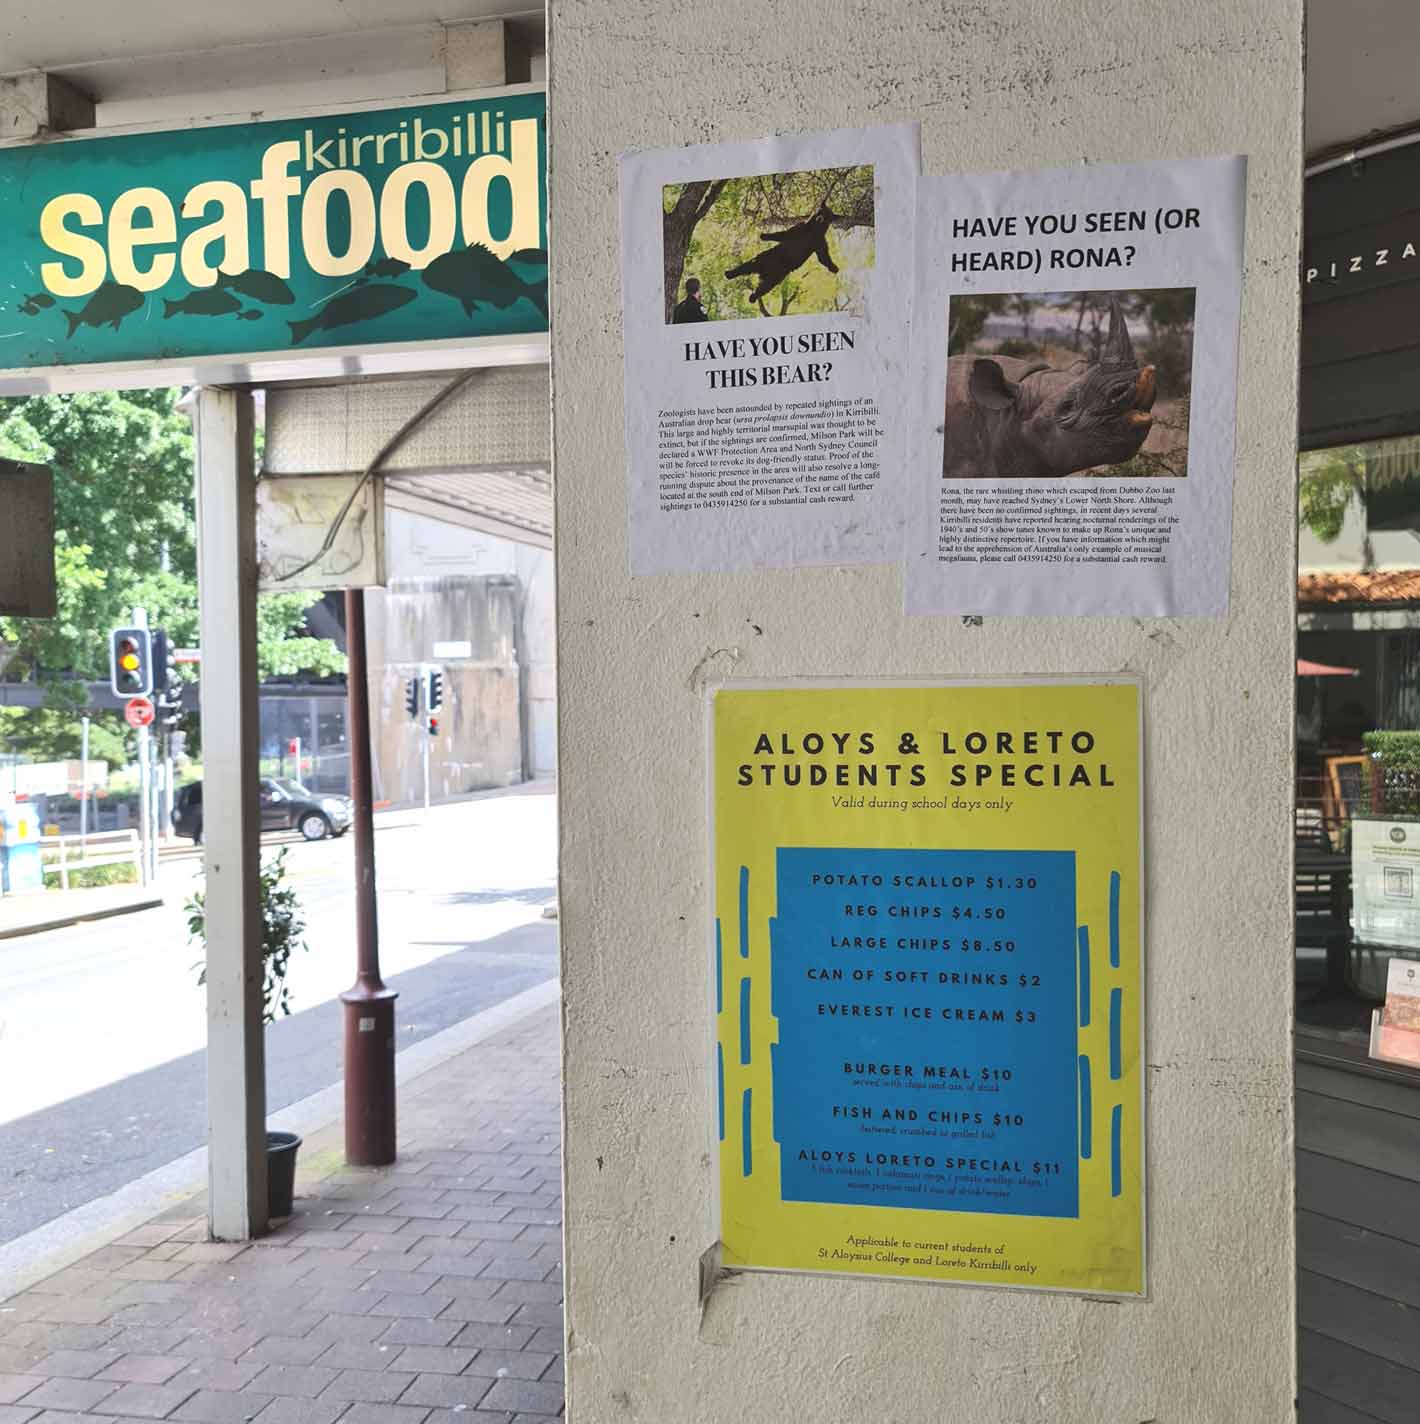 kirribilli
seafood
HAVE YOU SEEN
THIS BEAR?
Zoologists have been astounded by repeated sightings of an
Australian drop bear (ursa prolapsis downundio) in Kirribilli.
This large and highly territorial marsupial was thought to be
extinct, but if the sightings are confirmed, Milson Park will be
declared a WWF Protection Area and North Sydney Council
will be forced to revoke its dog-friendly status. Proof of the
species' historic presence in the area will also resolve a long-
running dispute about the provenance of the name of the café
located at the south end of Milson Park. Text or call further
sightings to 0435914250 for a substantial cash reward.
HAVE YOU SEEN (OR
HEARD) RONA?
Rona, the rare whistling rhino which escaped from Dubbo Zoo last
month, may have reached Sydney's Lower North Shore. Although
there have been no confirmed sightings, in recent days several
Kirribilli residents have reported hearing nocturnal renderings of the
1940's and 50's show tunes known to make up Rona's unique and
highly distinctive repertoire. If you have information which might
lead to the apprehension of Australia's only example of musical
megafauna, please call 0435914250 for a substantial cash reward.
PIZZA
ALOYS & LORETO
STUDENTS SPECIAL
Valid during school days only
POTATO SCALLOP $1.30
REG CHIPS $4.50
LARGE CHIPS $8.50
CAN OF SOFT DRINKS $2
EVEREST ICE CREAM $3
BURGER MEAL $10
served with chips and can of drink
FISH AND CHIPS $10
battered, crumbed or grilled fish
ALOYS LORETO SPECIAL $11
1 potato scallop, chips, 1
and 1 can of drink/water
Applicable to current students of
St Aloysius College and Loreto Kirribills only